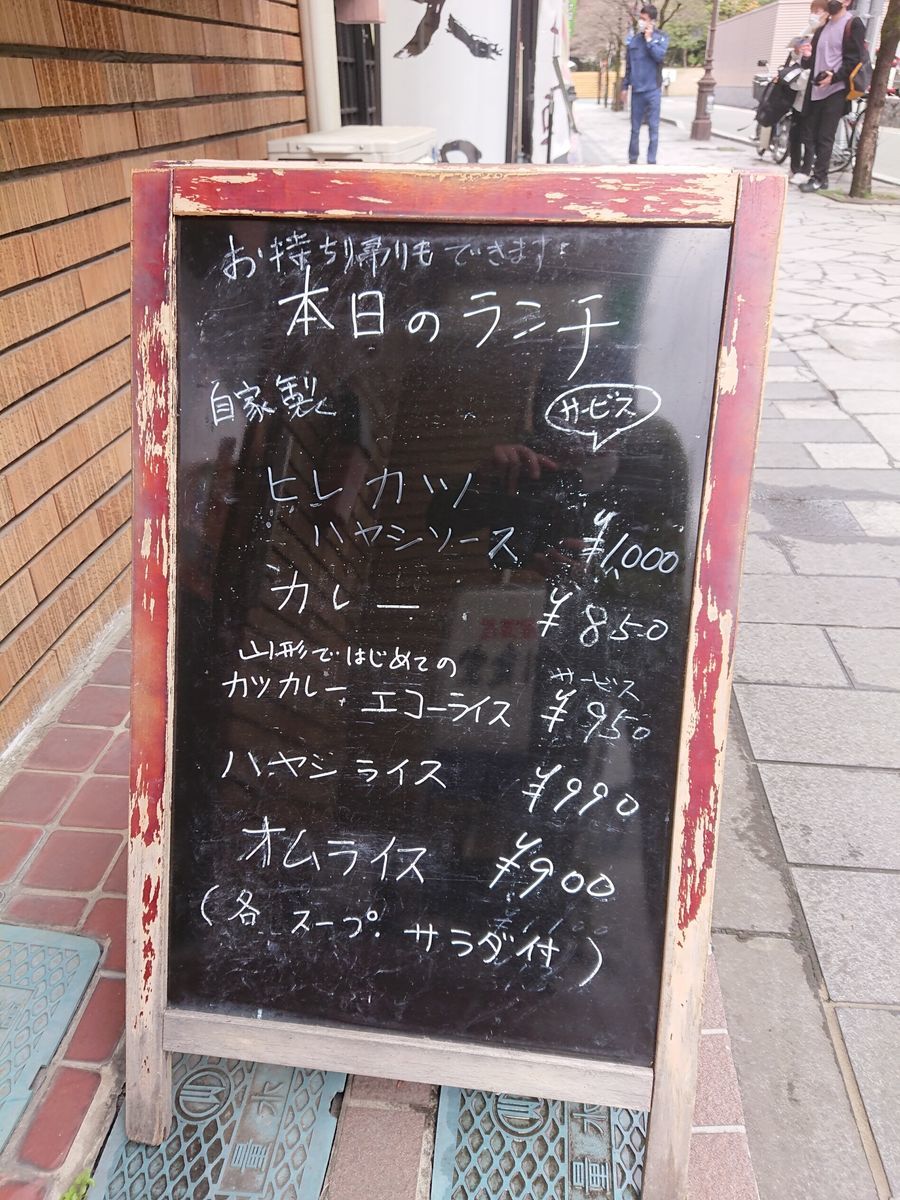 お持ち帰りもできます!
本日のランチ
自家製
サービス
ヒレカツ
ハヤシソース ¥1,000
カレー ¥850
山形ではじめての
カツカレー エコーライス サービス ¥950
ハヤシライス ¥990
オムライス ¥900
(各 スープ. サラダ付)
水
量
水
量